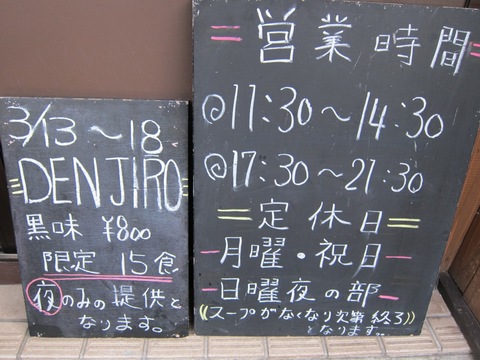 3/13～18
DENJIRO
黒味 ¥800
限定 15食
夜のみの提供と
なります。
営業時間
◎11:30～14:30
◎17:30～21:30
定休日
月曜・祝日
日曜夜の部
(スープがなくなり次第終了)
となります。